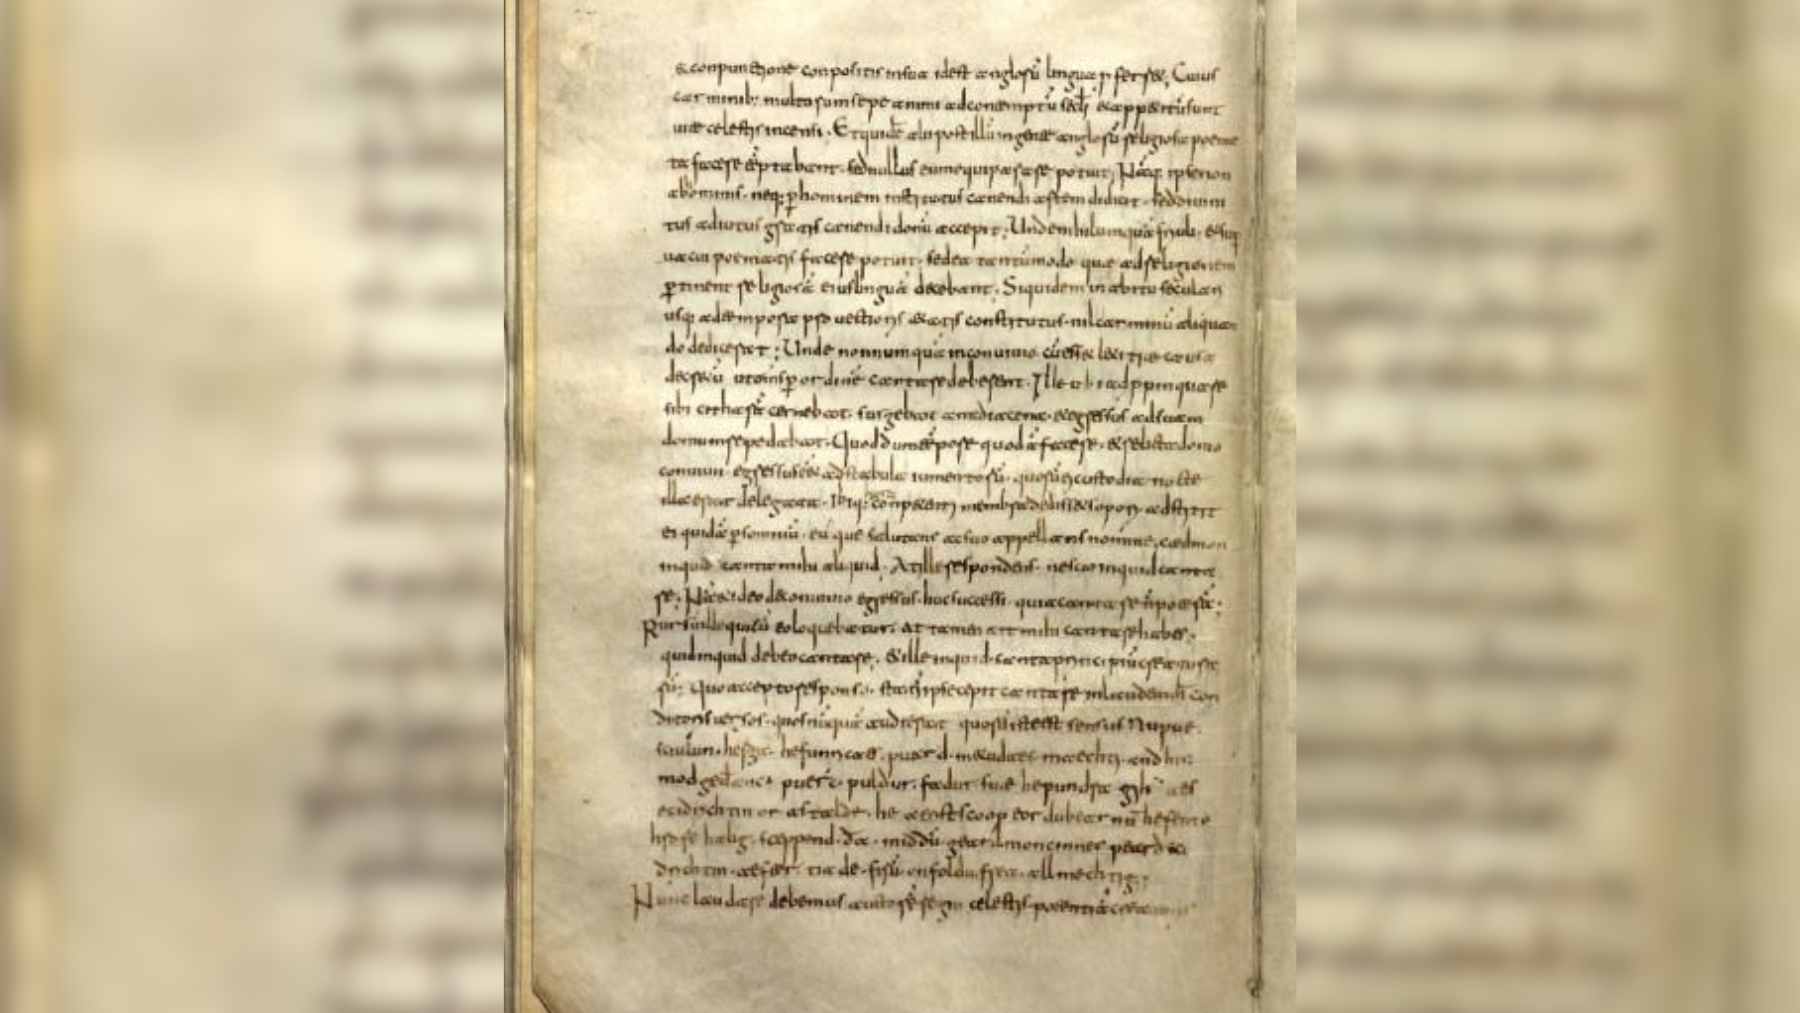 & conpunctione conpositis in sua id est anglosū lingua
carminib; multosum sepe animi ad contemptū secli & appetitū sunt
uitae celestis incensi. Et quidē alii post illū in gente anglosū religiosa poema
ta facere temptabant. sed nullus eum equiparare potuit; Nāq; ipse non
ab hominib. neq; p hominem institutus canendi artem didicit. sed diuini
tus adiutus gratis canendi donū accepit. Unde nihil umquā friuoli. & sup
uacui poematis facere potuit. sed ea tantūmodo quae ad religionem
ptinent religiosā eius linguā decebant. Siquidem in abitu seculari
usq; ad tempora prouectioris &atis constitutus. nil carminū aliquan
do dedicerat; Unde nonnumquā in conuiuio cū eēt laetitiae causa
decretū ut omīs p ordinē cantare deberent. Ille ubi adppinquare
sibi citharā cernebat. surgebat a media cena. & egressus ad suam
domum repedabat. Quod dum tēpore quodā faceret. & relicta domo
conuiui. egressus eēt ad stabula iumentorū. quorū ei custodia nocte
illa erat delegata. Ibiq; conpetenti membra dedisset sopori. adstitit
ei quidā p somniū. eū que salutans ac suo appellans nomine. caedmon
inquid canta mihi aliquid. At ille respondens. nescio inquid canta
re. Nā et ideo de conuiuio egressus. huc successi. quia cantare n poterā.
Rursū ille qui cū eo loquebatur. at tamen ait mihi cantare habes.
quid inquid debeo cantare. & ille inquid. canta principiū creatura
rū. Quo accepto responso. statī ipse cepit cantare in laudem dī con
ditoris uersos. quos nūquā audierat quorū iste est sensus Nu pue.
sciulun. herga. hefunricaes. puard. metudaes. maechti. and his
modgedanc. puerc. puldur. fadur. sue he pundra gihuaes
ecidrichtin or astalde. he aerist scoop eordubearnū hefen to
hrofe halig. sceppend. da. middūgeard. moncinnes peard eci
drichtin. aefter. tiade. firū. on foldu. frea. allmechtig.
Nunc laudare debemus auctorē regni celestis. potentiā creatoris